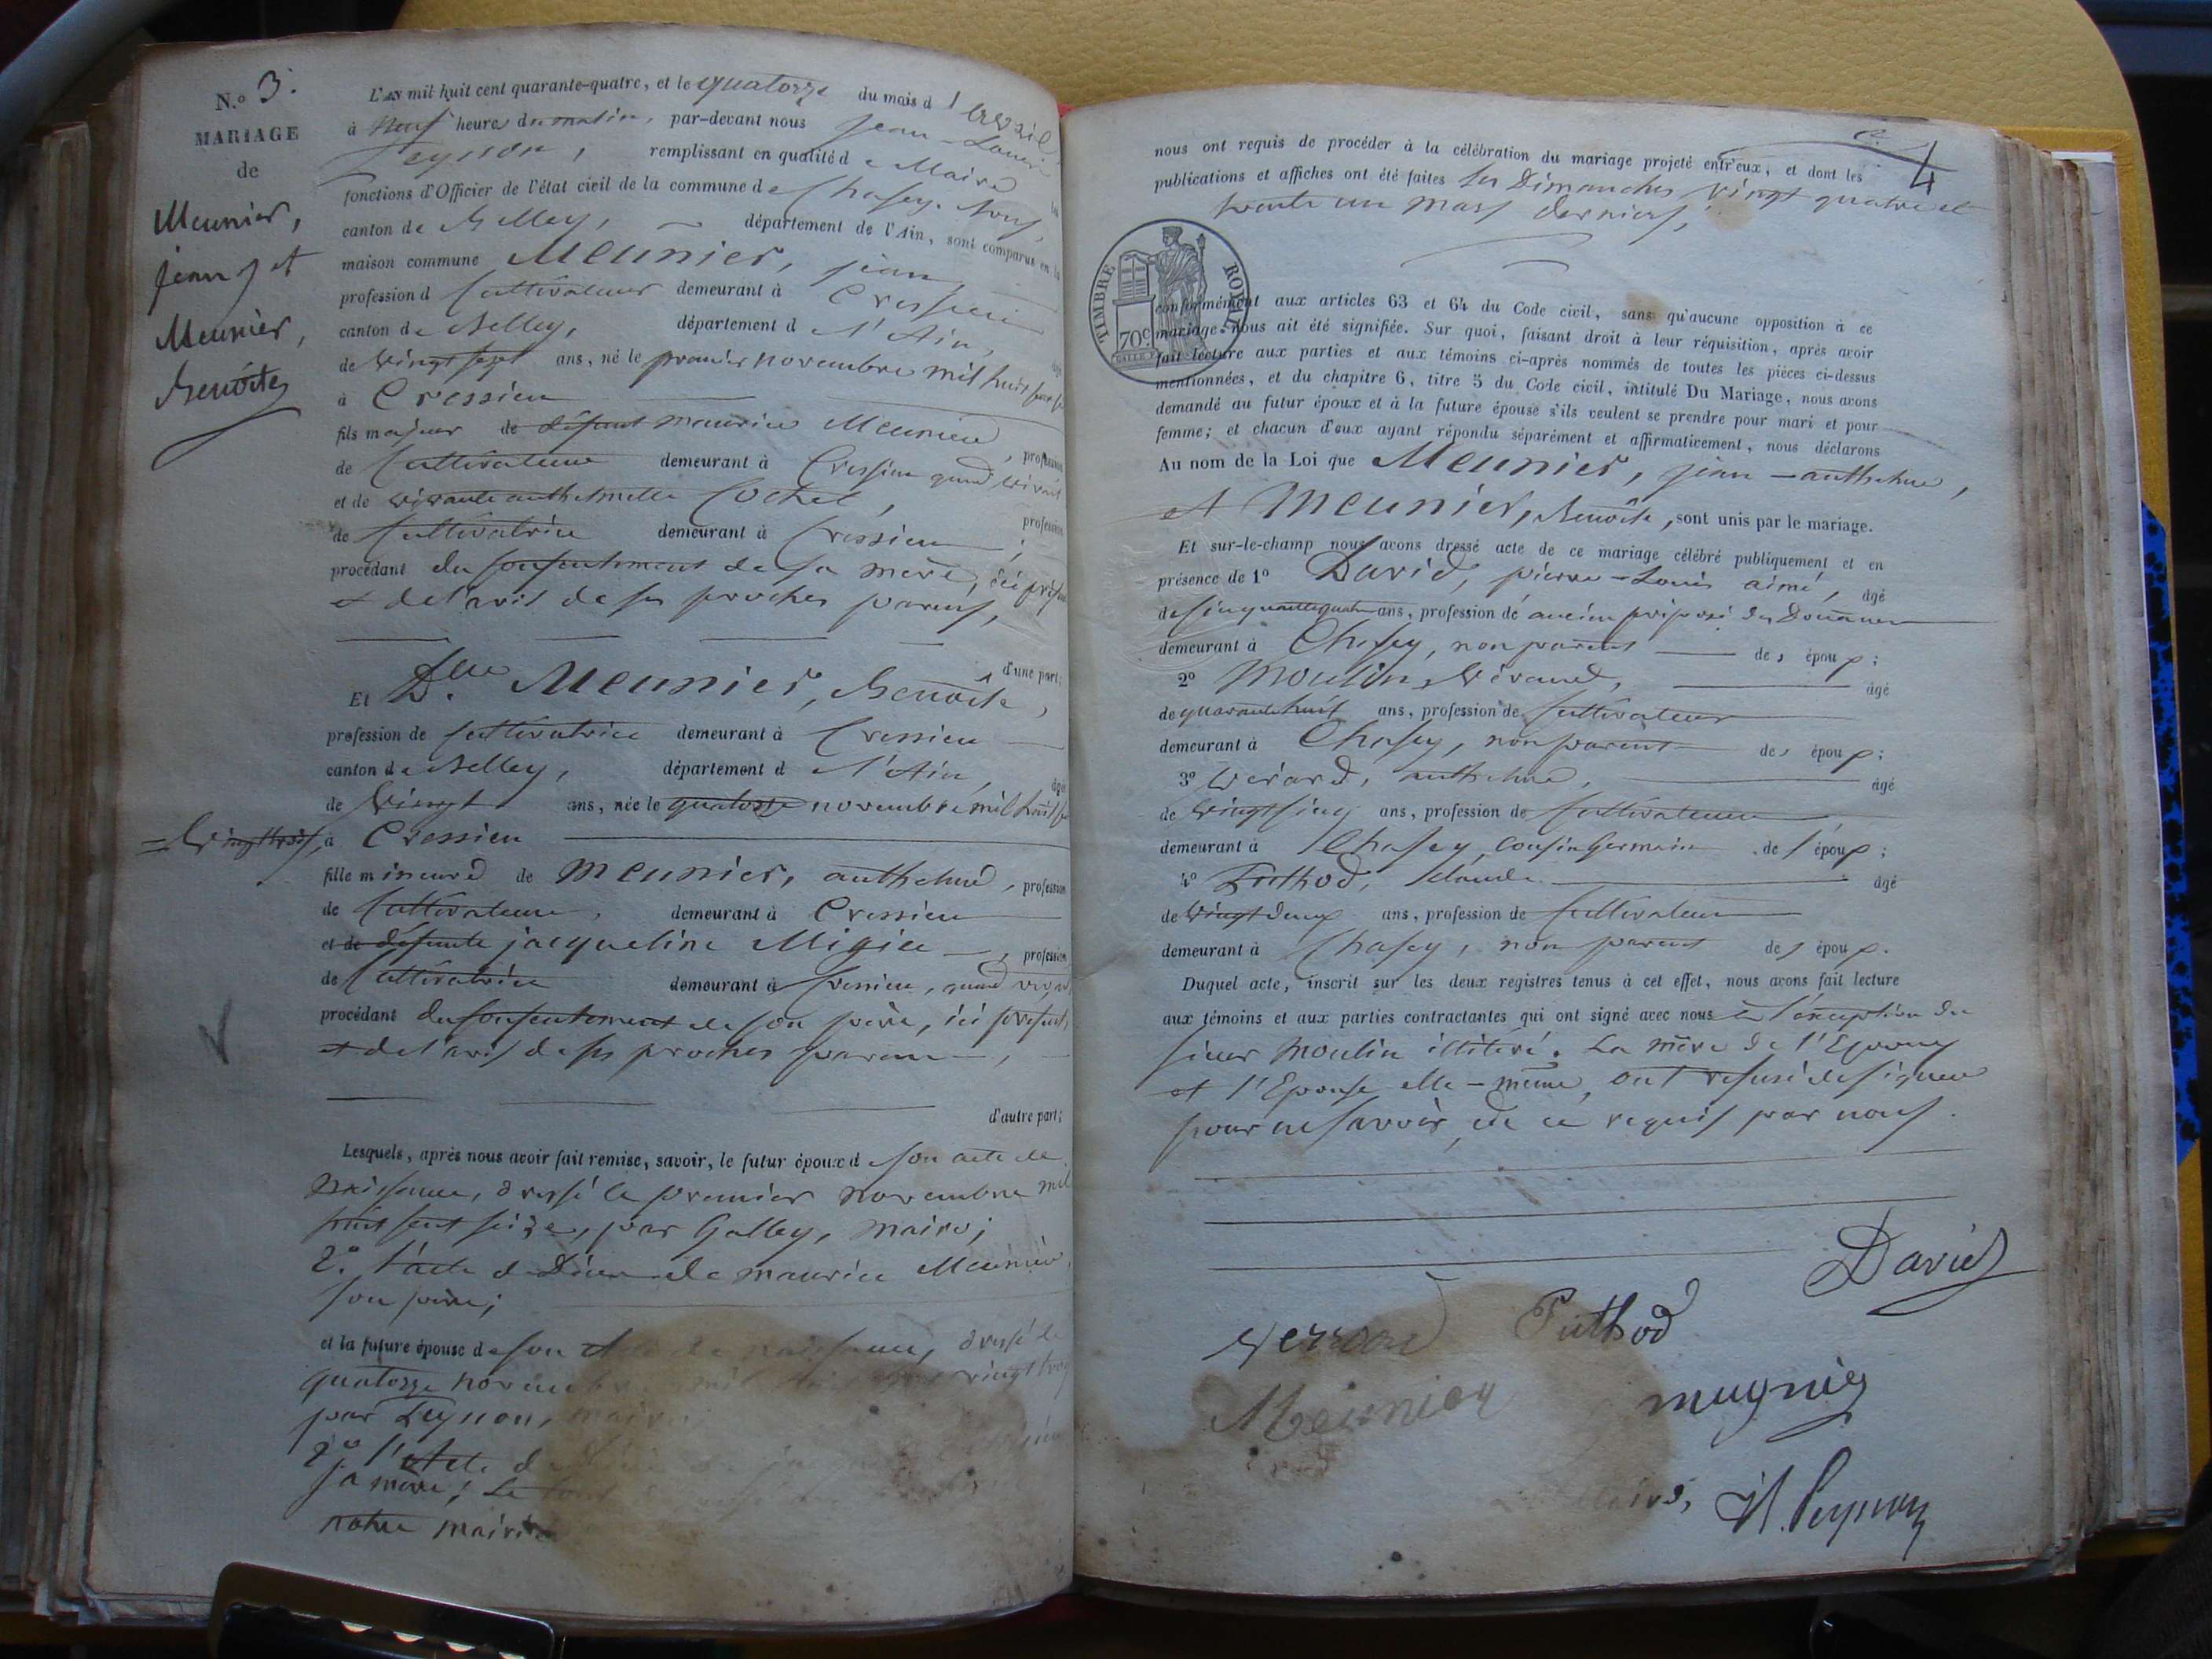 N.º 3.
MARIAGE
de
Meunier,
jean et
Meunier,
Benoîte
L'AN mil huit cent quarante-quatre, et le quatorze du mois d'avril
à neuf heures du matin, par-devant nous jean-Louis
Peysson, remplissant en qualité de Maire les
fonctions d'Officier de l'état civil de la commune de Chasey-bons,
canton de Belley, département de l'Ain, sont comparus en la
maison commune Meunier, jean
profession d cultivateur demeurant à Cressieu
canton de Belley, département d l'Ain, âgé
de vingt sept ans, né le premier novembre mil huit cent
à Cressieu
fils majeur de défunt maurice Meunier, profession
de cultivateur demeurant à Cressieu quand vivait
et de vivante anthelmette Cochet,
profession
de cultivatrice demeurant à Cressieu;
procédant du consentement de sa mère, ici présente
et de l'avis de ses proches parens,
d'une part;
Et Dlle Meunier, Benoîte,
profession de cultivatrice demeurant à Cressieu
canton de Belley, département d l'Ain, âgée
de vingt ans, née le quatorze novembre mil huit cent
= vingt trois, à Cressieu
fille mineure de Meunier, anthelme, profession
de cultivateur, demeurant à Cressieu
et de défunte jacqueline, profession
de cultivatrice demeurant à Cressieu, quand vivait
procédant du consentement de son père, ici présent,
et de l'avis de ses proches parens,
d'autre part;
Lesquels, après nous avoir fait remise, savoir, le futur époux de son acte de
naissance, dressé le premier novembre mil
huit cent seize, par Galley, maire;
2.º l'acte de Décès de maurice Meunier
son père;
et la future épouse de son acte de naissance, dressé le
quatorze novembre mil vingt trois
par Peysson, maire
2.º l'acte d
sa mère; Le tout
notre mairie
4
nous ont requis de procéder à la célébration du mariage projeté entr'eux, et dont les
publications et affiches ont été faites les Dimanches vingt quatre et
trente un mars derniers,
TIMBRE ROYAL
70c
conformément aux articles 63 et 64 du Code civil, sans qu'aucune opposition à ce
mariage nous ait été signifiée. Sur quoi, faisant droit à leur réquisition, après avoir
fait lecture aux parties et aux témoins ci-après nommés de toutes les pièces ci-dessus
mentionnées, et du chapitre 6, titre 5 du Code civil, intitulé Du Mariage, nous avons
demandé au futur époux et à la future épouse s'ils veulent se prendre pour mari et pour
femme; et chacun d'eux ayant répondu séparément et affirmativement, nous déclarons
Au nom de la Loi que Meunier, jean-anthelme,
et Meunier, Benoîte, sont unis par le mariage.
Et sur-le-champ nous avons dressé acte de ce mariage célébré publiquement et en
présence de 1º David, pierre-Louis aimé, âgé
de cinquante quatre ans, profession de ancien préposé des Douanes
demeurant à Chasey, non parent des époux;
2º Moulin, âgé
de quarante huit ans, profession de cultivateur
demeurant à Chasey, non parent des époux;
3º Verard, anthelme, âgé
de vingt cinq ans, profession de cultivateur,
demeurant à Chasey, cousin germain de l'époux;
4º Puthod, claude âgé
de vingt deux ans, profession de cultivateur
demeurant à Chasey, non parent des époux.
Duquel acte, inscrit sur les deux registres tenus à cet effet, nous avons fait lecture
aux témoins et aux parties contractantes qui ont signé avec nous à l'exception du
sieur Moulin illitéré. La mère de l'Epoux
et l'Epouse elle-même, ont refusé de signer
pour ne savoir, de ce requis par nous.
David
Verrard Puthod
Meunier mugnier
Maire, Jl. Peysson